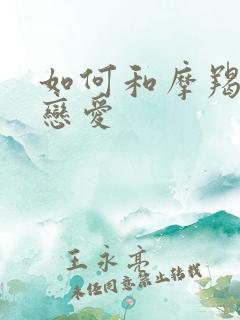 如何和摩羯
戀愛
王永亮
未经同意禁止转载